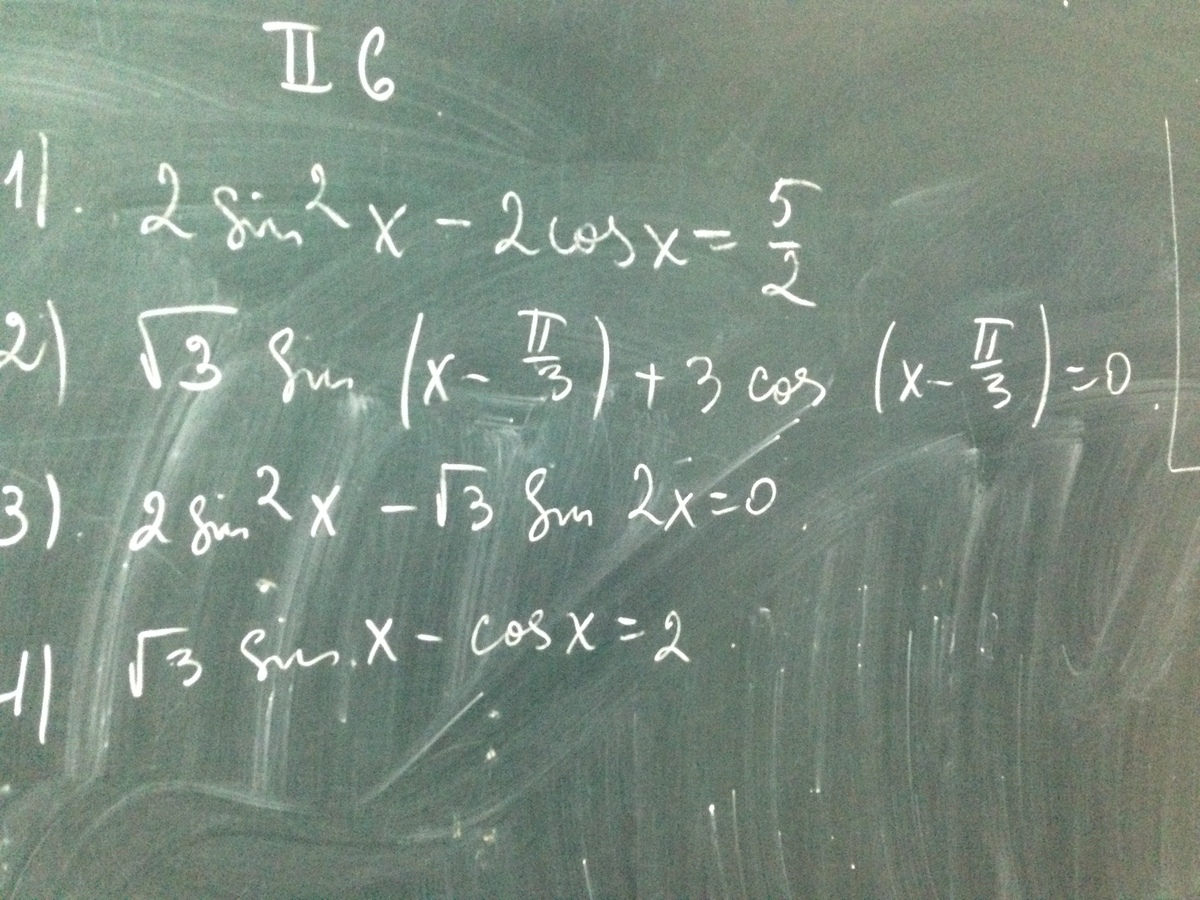 II б
1). 2 sin² x - 2 cos x = 5/2
2) √3 sin (x - π/3) + 3 cos (x - π/3) = 0.
3). 2 sin² x - √3 sin 2x = 0.
4) √3 sin x - cos x = 2.